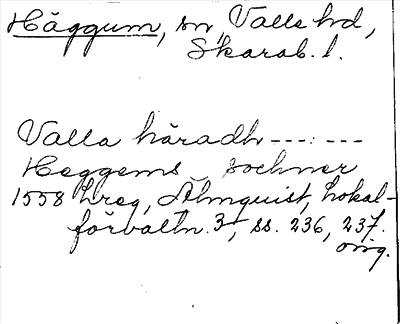 Häggum, sn, Valle hd,
Skarab. l.
Valla häradh ---:---
Heggems sochner
1558 Lreg, Almquist, Lokal-
förvaltn. 3, ss. 236, 237.
orig.